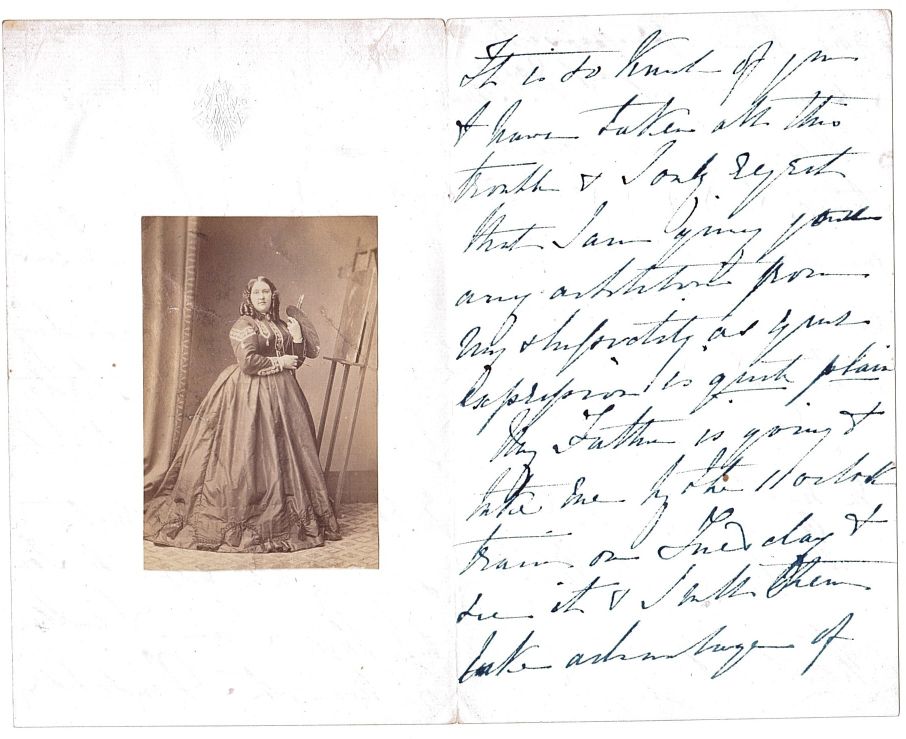 It is so kind of you
to have taken all this
trouble & I only regret
that I am giving you
any additional from
my as your
expression is quite plain
My Father is going to
take me by the 11 oclock
train on Tuesday to
see it & I will then
take advantage of